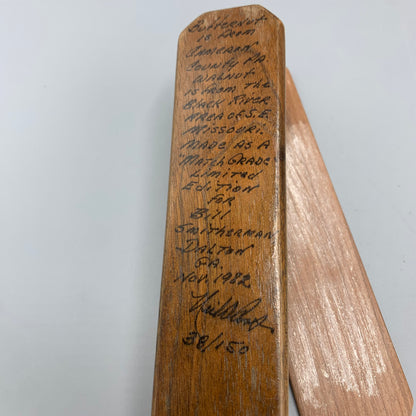 BUTTERNUT
IS FROM
CAMERON
COUNTY PA
WALNUT
IS FROM THE
BLACK RIVER
AREA OF S.E.
MISSOURI.
MADE AS A
"MATCH GRADE"
LIMITED
EDITION
FOR
Bill
SMITHERMAN
DALTON
GA.
NOV. 1982
38/150